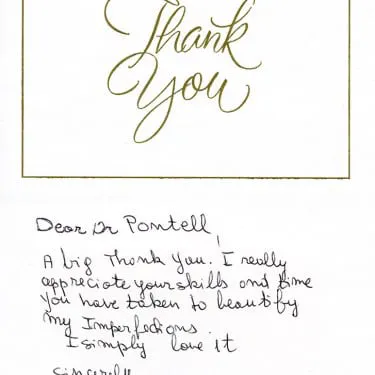 Thank
You
Dear Dr Pontell!
A big Thank You. I really
appreciate your skills and time
you have taken to beautify
my Imperfections.
I simply love It
Sincerely